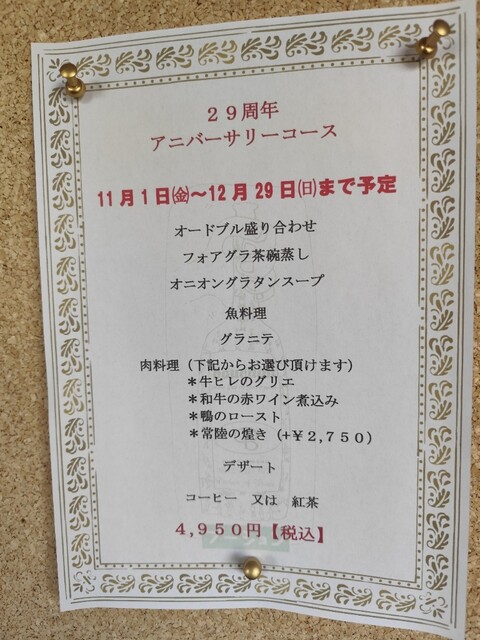 ２９周年
アニバーサリーコース
11月1日㈮～12月29日㈰まで予定
オードブル盛り合わせ
フォアグラ茶碗蒸し
オニオングラタンスープ
魚料理
グラニテ
肉料理（下記からお選び頂けます）
＊牛ヒレのグリエ
＊和牛の赤ワイン煮込み
＊鴨のロースト
＊常陸の煌き（+￥２,７５０）
デザート
コーヒー　又は　紅茶
４,９５０円【税込】